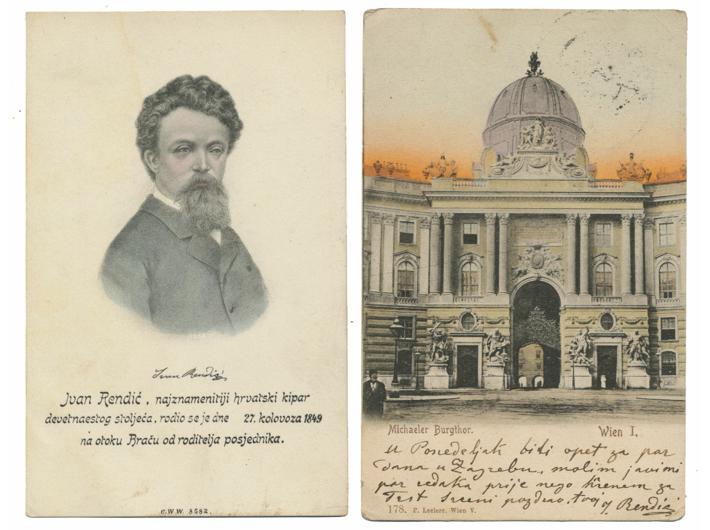 Ivan Rendić
Ivan Rendić, najznamenitiji hrvatski kipar
devetnaestog stoljeća, rodio se je dne 27. kolovoza 1849
na otoku Braču od roditelja posjednika.
C.W.W. 8582.
Michaeler Burgthor. Wien I.
U Ponedeljak biti opet za par
dana u Zagrebu, molim javi mi
par redaka prije nego krenem za
Trst srceni pozdrav, tvoj Rendić
178. P. Ledermann, Wien V.